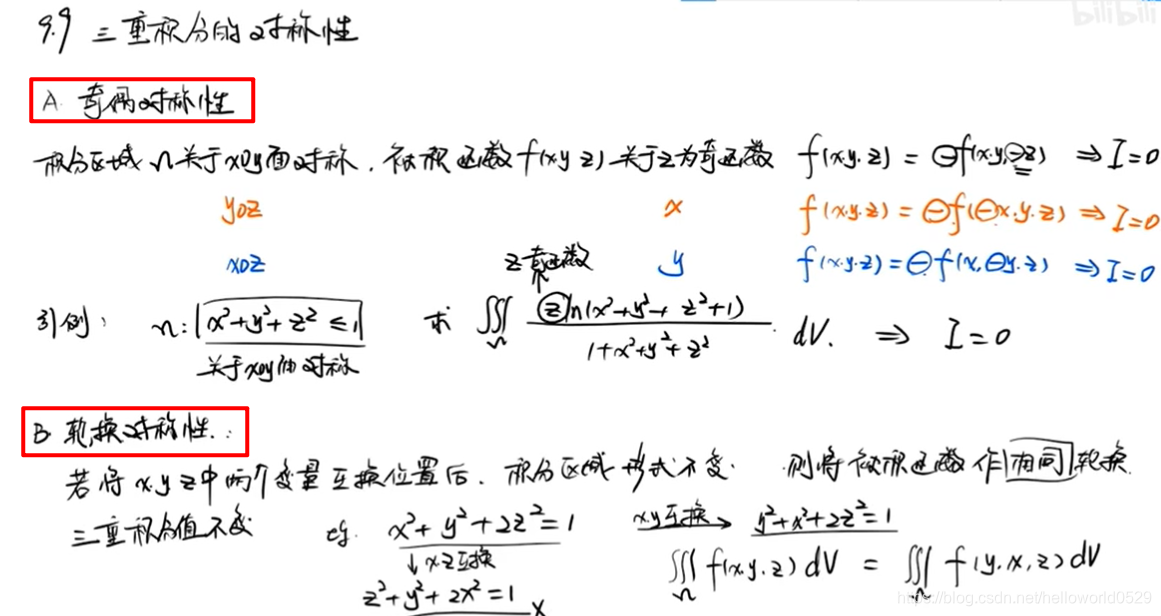 bilibili
9.9 三重积分的对称性
A. 奇偶对称性
积分区域 Ω 关于xoy面对称, 被积函数f(x.y z) 关于z为奇函数 f(x.y.z) = ⊖f(x.y,⊖z) ⇒ I=0
yoz x f(x.y.z) = ⊖f(⊖x.y.z) ⇒ I=0
xoz z奇函数 y f(x.y.z) = ⊖f(x,⊖y.z) ⇒ I=0
引例: Ω: x²+y²+z² ≤1 求 ∭_Ω z ln(x²+y²+z²+1) / 1+x²+y²+z² dV. ⇒ I=0
关于xoy面对称
B 轮换对称性.:
若将 x.y z 中两个变量互换位置后, 积分区域形式不变. 则将被积函数作相同轮换.
三重积分值不变 eg. x²+y²+2z²=1 x y互换→ y²+x²+2z²=1
↓xz互换 ∭_Ω f(x.y.z) dV = ∭_Ω f(y.x,z) dV
z²+y²+2x²=1 x
https://blog.csdn.net/helloworld0529